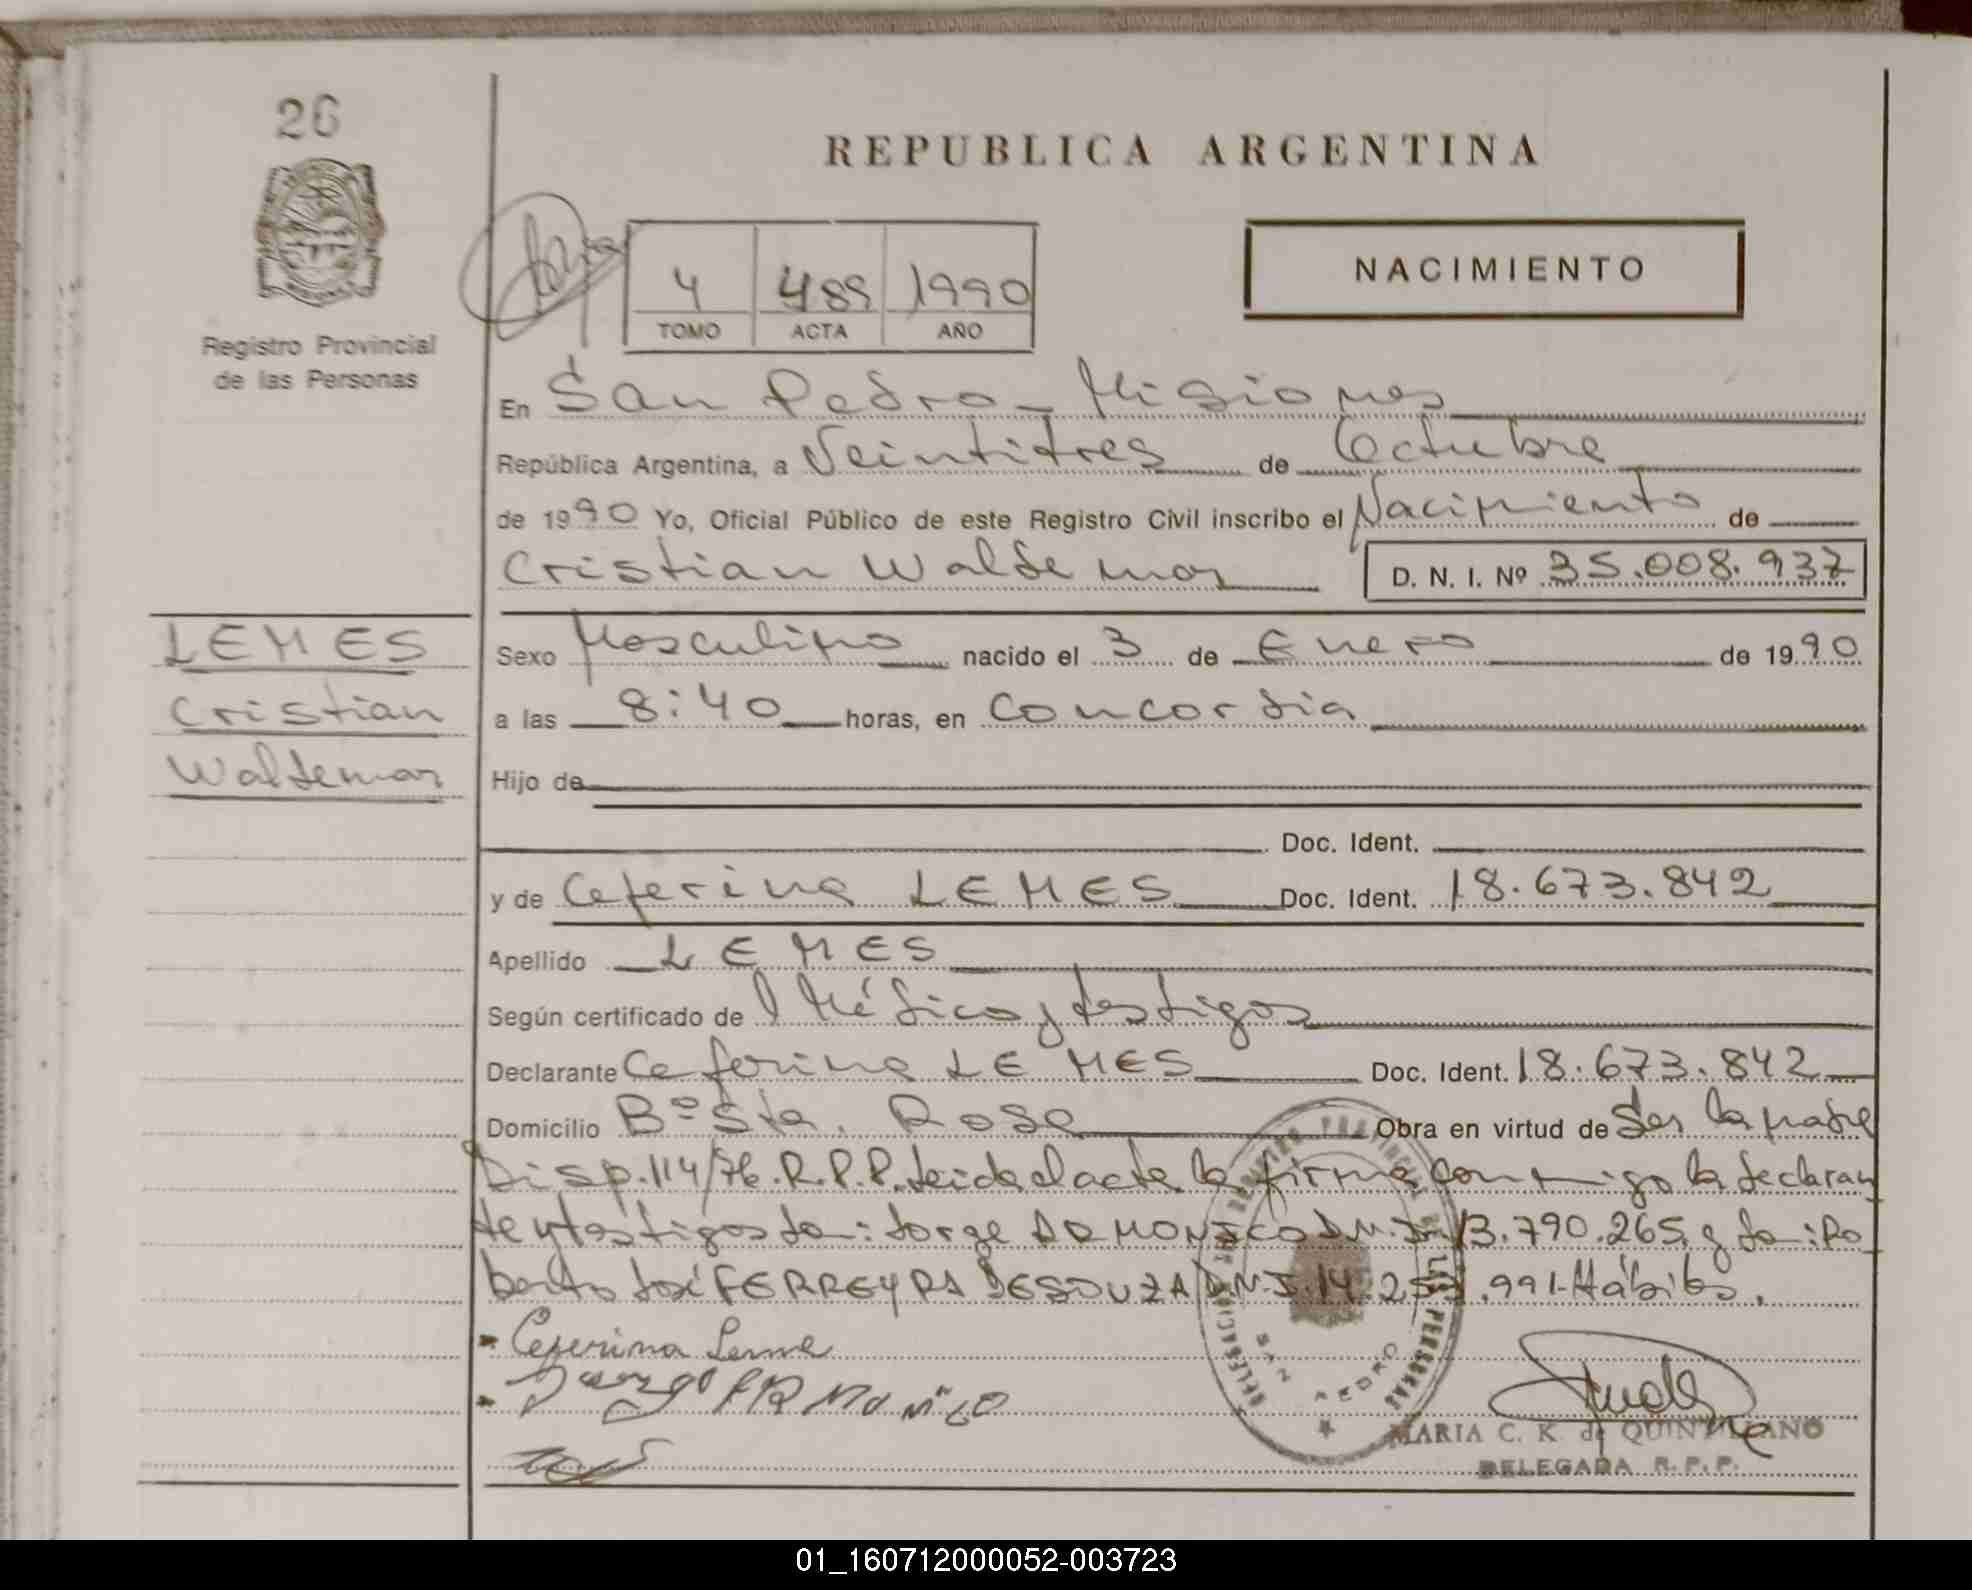 26
REPUBLICA ARGENTINA
NACIMIENTO
4 489 1990
TOMO ACTA AÑO
Registro Provincial
de las Personas
En San Pedro - Misiones
República Argentina, a Veintitres de Octubre
de 1990 Yo, Oficial Público de este Registro Civil inscribo el Nacimiento de
Cristian Waldemar D. N. I. Nº 35.008.937
LEMES
Cristian
Waldemar
Sexo Masculino nacido el 3 de Enero de 1990
a las 8:40 horas, en Concordia
Hijo de
Doc. Ident.
y de Ceferina LEMES Doc. Ident. 18.673.842
Apellido LEMES
Según certificado de Médico y testigos
Declarante Ceferina LEMES Doc. Ident. 18.673.842
Domicilio Bº Sta. Rosa Obra en virtud de Ser la madre
Disp. 114/76. R.P.P. Leida el acta la firma conmigo la declaran
te y testigos Jorge D.N.I. 13.790.265 y Ro
berto José FERREYRA DESOUZA D.N.I. 14.25 .991- Hábiles.
Ceferina Leme
MARIA C. K. de QUINTILIANO
DELEGADA R.P.P.
DELEGACION DEL REGISTRO PROVINCIAL DE LAS PERSONAS
SAN PEDRO
01_160712000052-003723